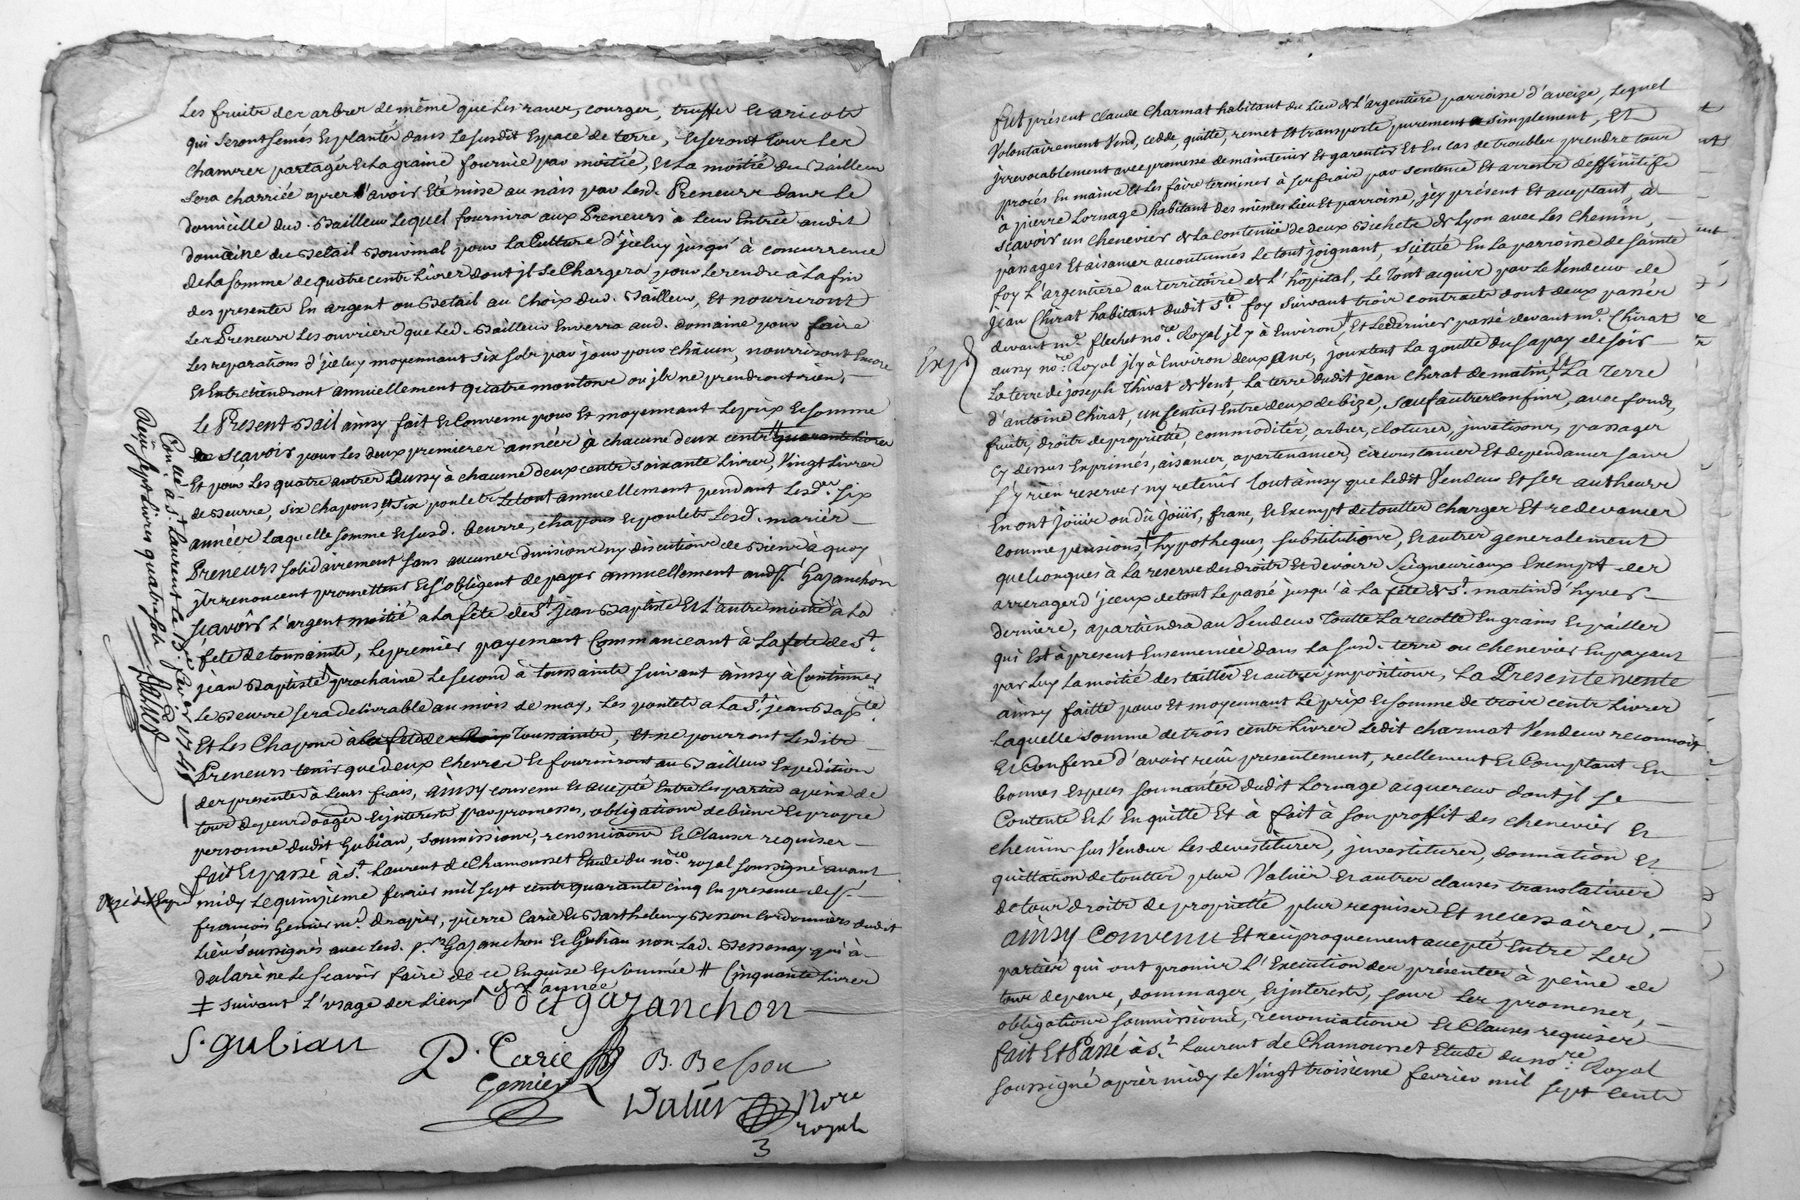 Les fruits des arbres de même que les raves, courges, truffes et aricots
qui seront semés et plantés dans le susdit espace de terre, et seront tous les
chanvres partagés et la graine fournie par moitié, et la moitié du Bailleur
sera charriée apres l'avoir eté mise au nais par lesd. Preneurs dans le
domicille dud. Bailleur lequel fournira aux Preneurs a leur entrée audit
domaine du Betail Bouvinal pour la Culture d'jceluy jusqu'à concurrence
de la somme de quatre cents Livres dont jls se Chargera pour le rendre à la fin
des presentes En argent ou Betail au choix dud. Bailleur, et nourriront
les Preneurs les ouvriers que led. Bailleur Enverra aud. domaine pour faire
les reparations d'jceluy moyennant six sols par jour pour châcun, nourriront Encore
et Entretiendront annuellement quatre moutons ou jls ne prendront rien,
Le Present Bail ainsy fait et Convenu pour et moyennant le prix et somme
sçavoir pour les deux premieres années à chacune deux cents # quarante livres
et pour les quatre autres aussy à chacune deux cents soixante Livres, Vingt Livres
de Beurre, six chapons et six poulets le tout annuellement pendant lesd. six
années laquelle somme et susd. beurre, chapons et poulets lesd. mariés
Preneurs solidairement sans aucunes divisions ny discutions de Biens à quoy
jls renoncent promettent et s'obligent de payer annuellement audt. Gazanchon
sçavoir l'argent moitié a la fête de St. jean Baptiste et l'autre moitié à la
fête de toussaints, le premier payement Commenceant à la fete de St.
jean Baptiste prochaine le second à toussaints suivant ainsy à Continuer
Le Beurre sera delivrable au mois de may, les poulets a la St. jean Bapte.
Et les Chapons à la fete de Toussaints, et ne pourront lesdits
Preneurs tenir que deux chevres et fourniront au Bailleur Expedition
des presentes à leurs frais, ainsy convenu et accepté Entre les parties a peine de
tous depens domages et jnterests par promesses, obligations de biens et propre
personne dudit Gubian, soumissions, renonciations et Clauses requises
fait et passé à St. Laurent de Chamousset Etude du nore. royal soussigné avant
midy le quinzieme fevrier mil sept cents quarante cinq En presence de srs.
françois Gemier md. drapier, pierre Carie et Barthelemy Besson cordonniers dudit
Lieu soussignés avec lesd. Gazanchon et Gubian non lad. Bessenay qui à
declaré ne le sçavoir faire de ce Enquise et sommée # Cinquante Livres
‡ suivant l'usage des lieux
Benoit gazanchon
S. gubian
P. Carie
B. Besson
Gemier
Nore
royal
3
Conllé à St. Laurent le
Reçu sept livres quatre sols
fut présent claude Charmat habitant du Lieu de l'argentiere parroisse d'aveize, Lequel
Volontairement Vend, cedde, quitte, remet et transporte purement et simplement, et
jrrevocablement avec promesse de maintenir et garentir et En cas de troubles prendre tous
procés En mains et les faire terminer à ses frais par sentence et arrests deffinitifs
à pierre Lornage habitant des mêmes Lieu et parroisse, jcy présent et acceptant, à
sçavoir un chenevier de la contenüe de deux Bichets de Lyon avec les chemin,
passages et aisances accoutumés le tout joignant, scitüé En la parroisse de sainte
foy l'argentiere au territoire de l'hôpital, le tout acquis par le Vendeur de
jean Chirat habitant dudit Ste. foy suivant trois contracts dont deux passés
devant me. flechet nore. Royal jl y à Environ, et le dernier passé devant me. Chirat
aussy nore. Royal jl y à Environ deux ans, jouxtent la goutte du sapay de soir
la terre de joseph Thivat de Vent, la terre dudit jean Chirat de matin, la Terre
d'antoine Chirat, un sentier Entre deux de bize, sauf autres confins, avec fonds,
fruits, droits de proprieté, commodités, arbres, clotures, juvatisons, passages
cy dessus Exprimés, aisances apartenances, circonstances et dependances sans
s'y rien reserver ny retenir tout ainsy que ledit Vendeur et ses autheurs
En ont joüir ou dû joüir, franc, et Exempt de touttes charges et redevances
comme pensions, hypotheques, substitutions, et autres generalement
quelconques à la reserve des droits et devoirs Seigneuriaux Exempt des
arrerages d'jceux de tout le passé jusqu'à la fête de St. martin d'hyver
derniere, apartiendra au Vendeur toutte la recolte En grains et pailles
qui Est à present Ensemencée dans la susd. terre ou chenevier En payant
par luy la moitié des tailles et autres jmpositions, La Presente vente
ainsy faitte pour et moyennant le prix et somme de trois cents Livres
Laquelle somme de trois cents Livres ledit charmat Vendeur reconnoit
et Confesse d'avoir reçu presentement, reellement et Comptant En
bonnes Especes sonnantes dudit Lornage acquereur dont jl se
Contente et l'En quitte et à fait à son proffit des chenevier et
chemin sus Vendus les devestitures, jnvestitures, donnation et
quittation de touttes plus Valües et autres clauses translatives
de tous droits de proprieté plus requises et necessaires.
ainsy Convenu et reciproquement accepté Entre les
parties qui ont promis l'Execution des présentes à peine de
tous depens, dommages, et jnterests, sous les promesses,
obligations soumissions, renonciations et Clauses requises
fait Et Passé à St. Laurent de Chamousset Etude du nore. Royal
soussigné aprés midy le Vingt troisieme fevrier mil sept cents